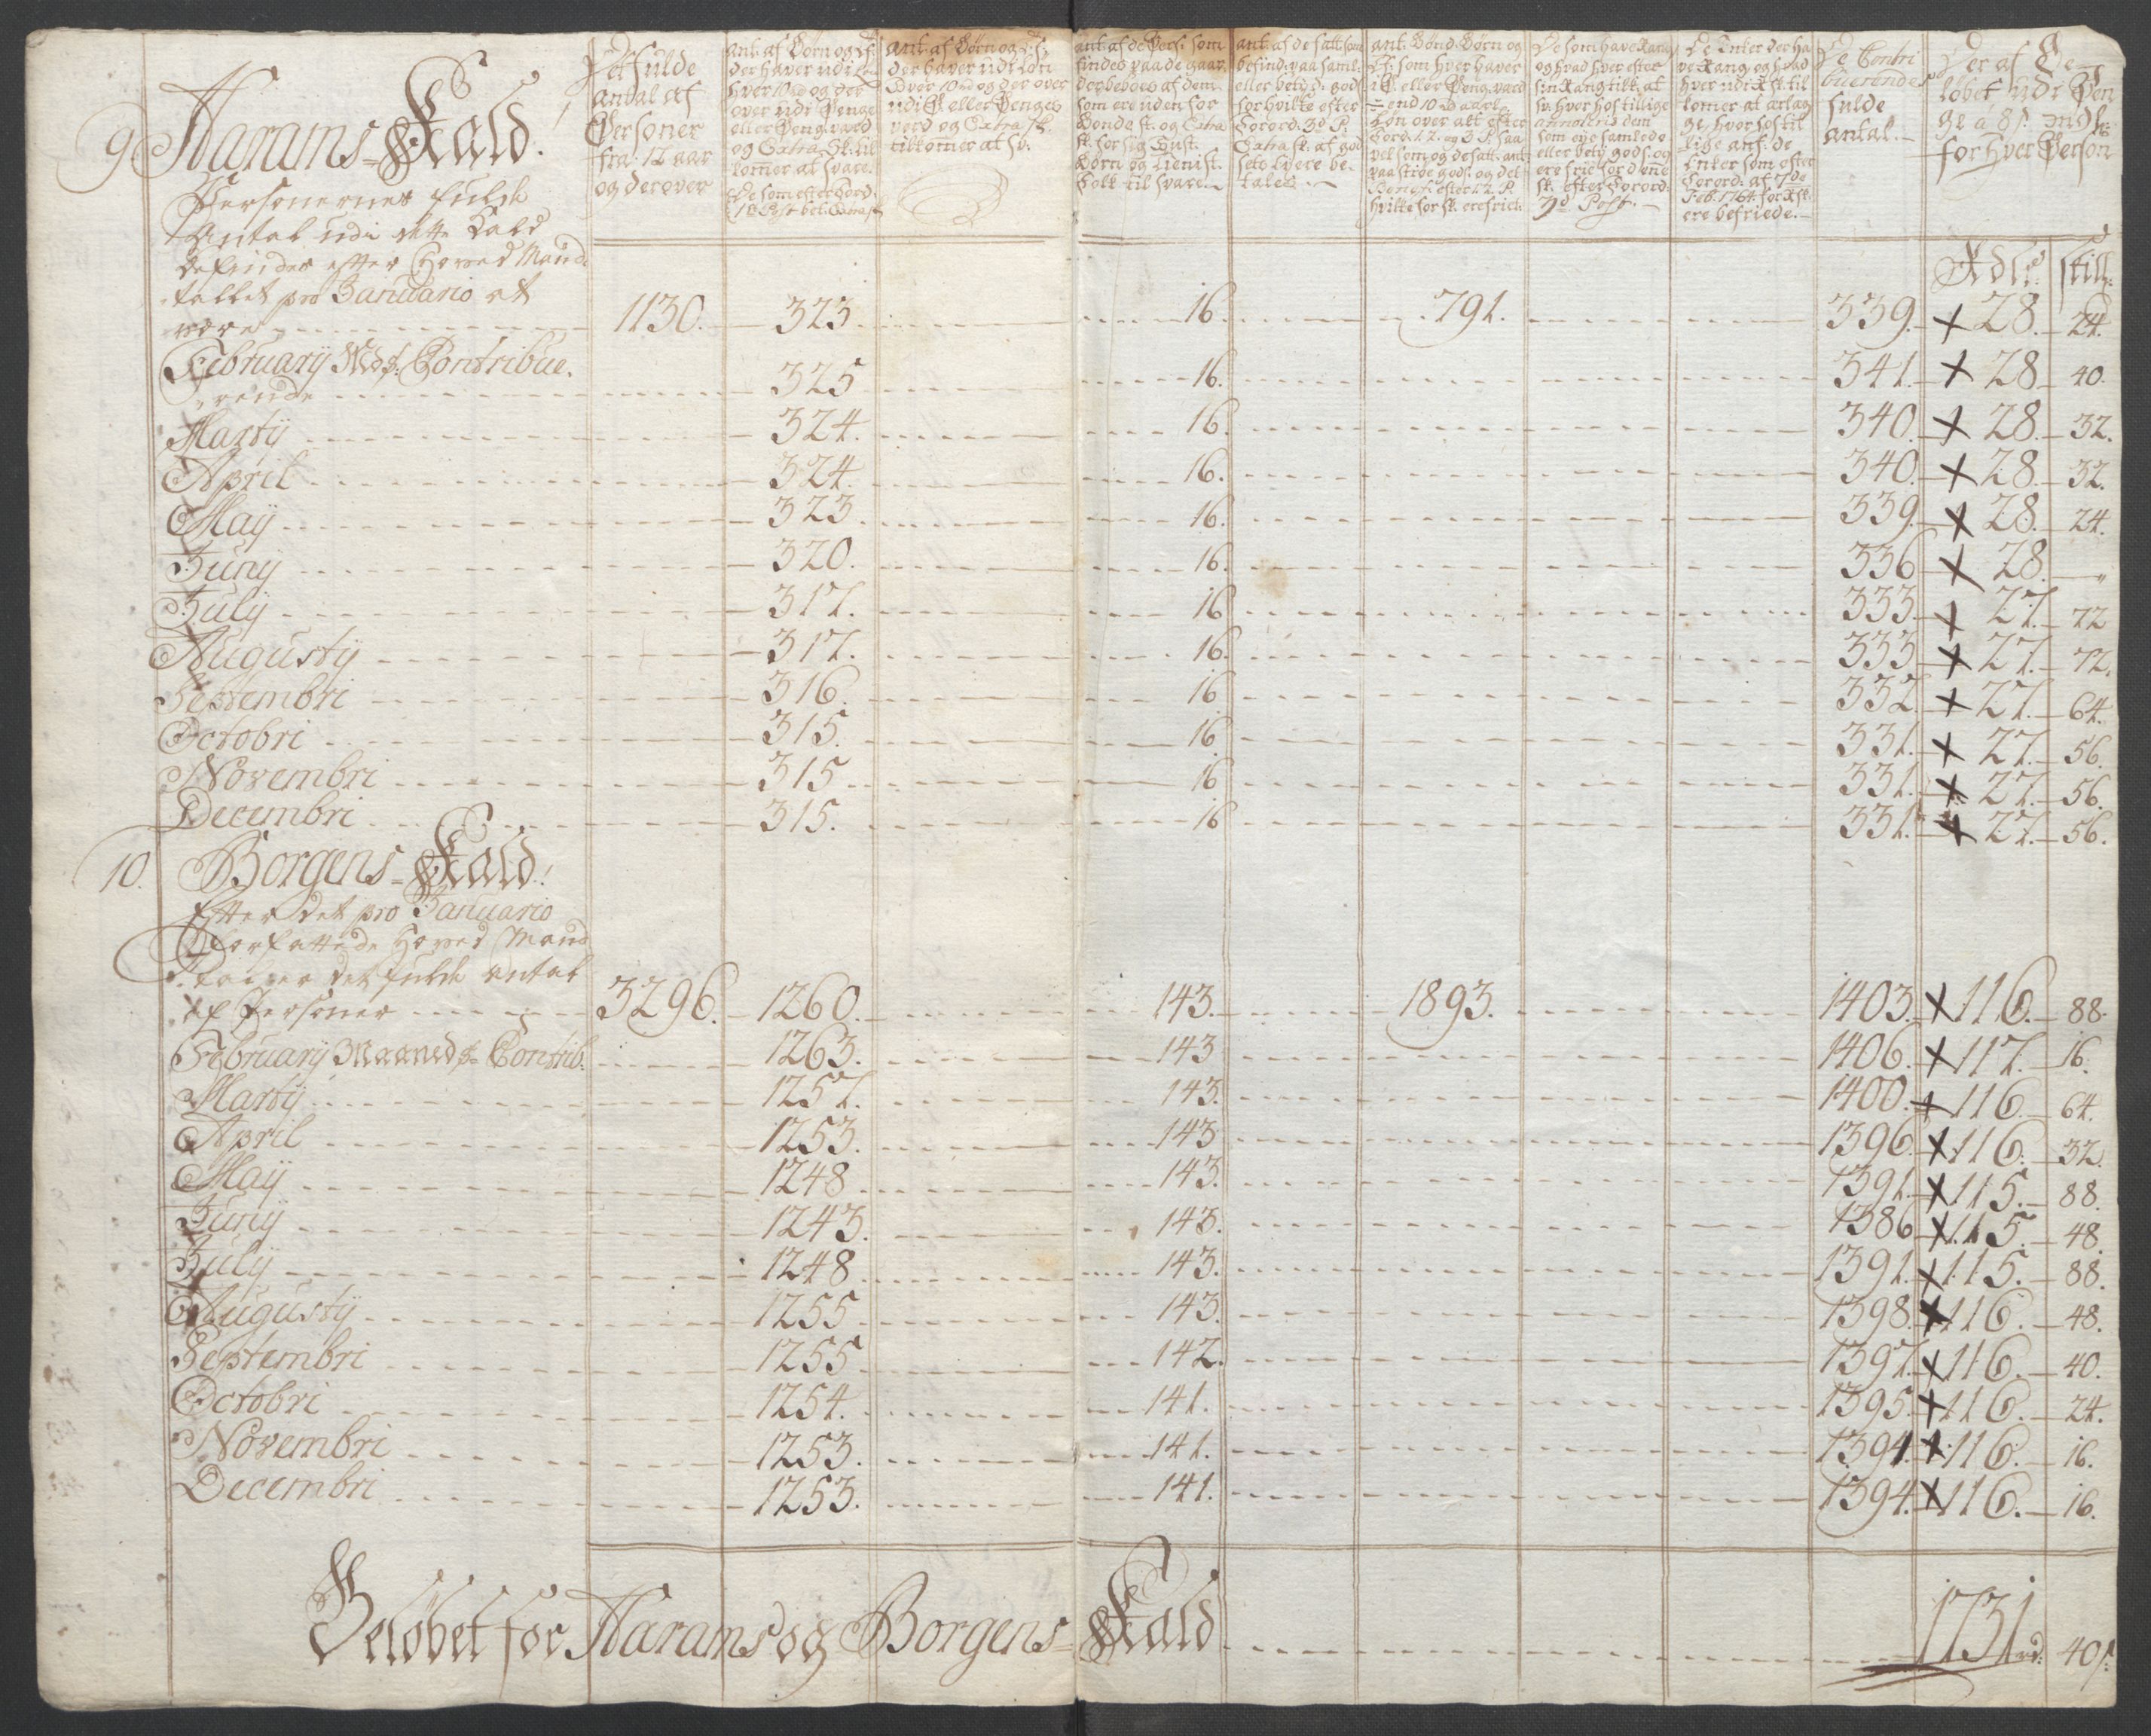 Det fulde
antal af
Personer
fra 12 aar
og derover
ant: af Børn og
der haver udi
hver 10 rd og der
over udi Penge
eller Peng. værd
og Extra Sk: til
komer at svare.
De som efter Ford:
ant: af Børn og
der haver udi Løn
over 10 rd og der over
udi eller Penges
værd og Extra Sk.
tilkomer at sv:
ant: af de Pers: som
findes paa de gaar
der beboes af dem
som ere uden for
Bonde st: og Extra
sk. for sig Hust:
Børn og Tienist
Folk til svare.
ant: af de satt: som
befind: paa saml:
eller betyd: god
for hvilke efter
Forord: 3d P.
Extra sk. af god
sets Eiere be-
tales.
ant: Bønd: Børn og
som hver haver
eller Peng: værd
end 10 rd aarl:
Løn over alt efter
Ford: 1. 2. og 3 P. saa
vel som og de satt: ant:
paa strøe gods: og det
efter 12. P.
hvilke for sk. ere friet:
De som have Rang
og hvad hver efter
sin Rang tilk: at
sv: hver hos tillige
annoteris dem
som eje samlede
eller betÿ: gods: og
ere frie for denne
sk. efter Forord:
3d Post.
De Enker der ha
ve Rang, og hvad
hver udi Rsk: til
komer at erlæg
ge, hvor hos til
lige anf: de
Enker som efter
Forord: af 7de
Feb: 1764. for Rsk:
ere befriede.
De Contri
buerendes
fulde
antal.
Der af Be-
løbet udi Pen
ge a 8 s: Mdl:
for hver Person
9 Harams-Kald.
Personernes fulde
Antal udi dette Kald
befindes efter Hoved Mand
tallet pro Januario at
Rdlr: Skill:
være 1130. 323. 16. 791. 339. 28. 24.
February Mds: Contribue.
rende 325 16. 341. 28. 40.
Martÿ 324. 16. 340. 28. 32.
April 324. 16. 340. 28. 32.
Maÿ 323. 16. 339. 28. 24.
Junÿ 320. 16. 336 28. "
Julÿ 317. 16 333. 27. 72
Augustÿ 317. 16. 333 27. 72.
Septembri 316. 16 332 27. 64.
Octobri 315. 16. 331. 27. 56.
Novembri 315 16 331. 27. 56.
Decembri 315. 16 331. 27. 56.
10. Borgens-Kald.
Efter det pro Januario
forfattede Hoved Mand
Tal er det fulde antal
af Personer 3296. 1260. 143. 1893. 1403. 116. 88.
February Maaneds Contrib: 1263. 143 1406. 117. 16.
Martÿ 1257. 143. 1400. 116. 64.
April 1253. 143 1396. 116. 32.
Maÿ 1248 143. 1391. 115. 88.
Junÿ 1243. 143. 1386 115. 48.
Julÿ 1248 143. 1391. 115. 88.
Augustÿ 1255 143. 1398. 116. 48.
Septembri 1255 142. 1397. 116. 40.
Octobri 1254. 141. 1395. 116. 24.
Novembri 1253. 141. 1394. 116. 16.
Decembri 1253. 141. 1394. 116. 16.
Beløbet for Harams og Borgens-Kald 1731 rd: 40 s: